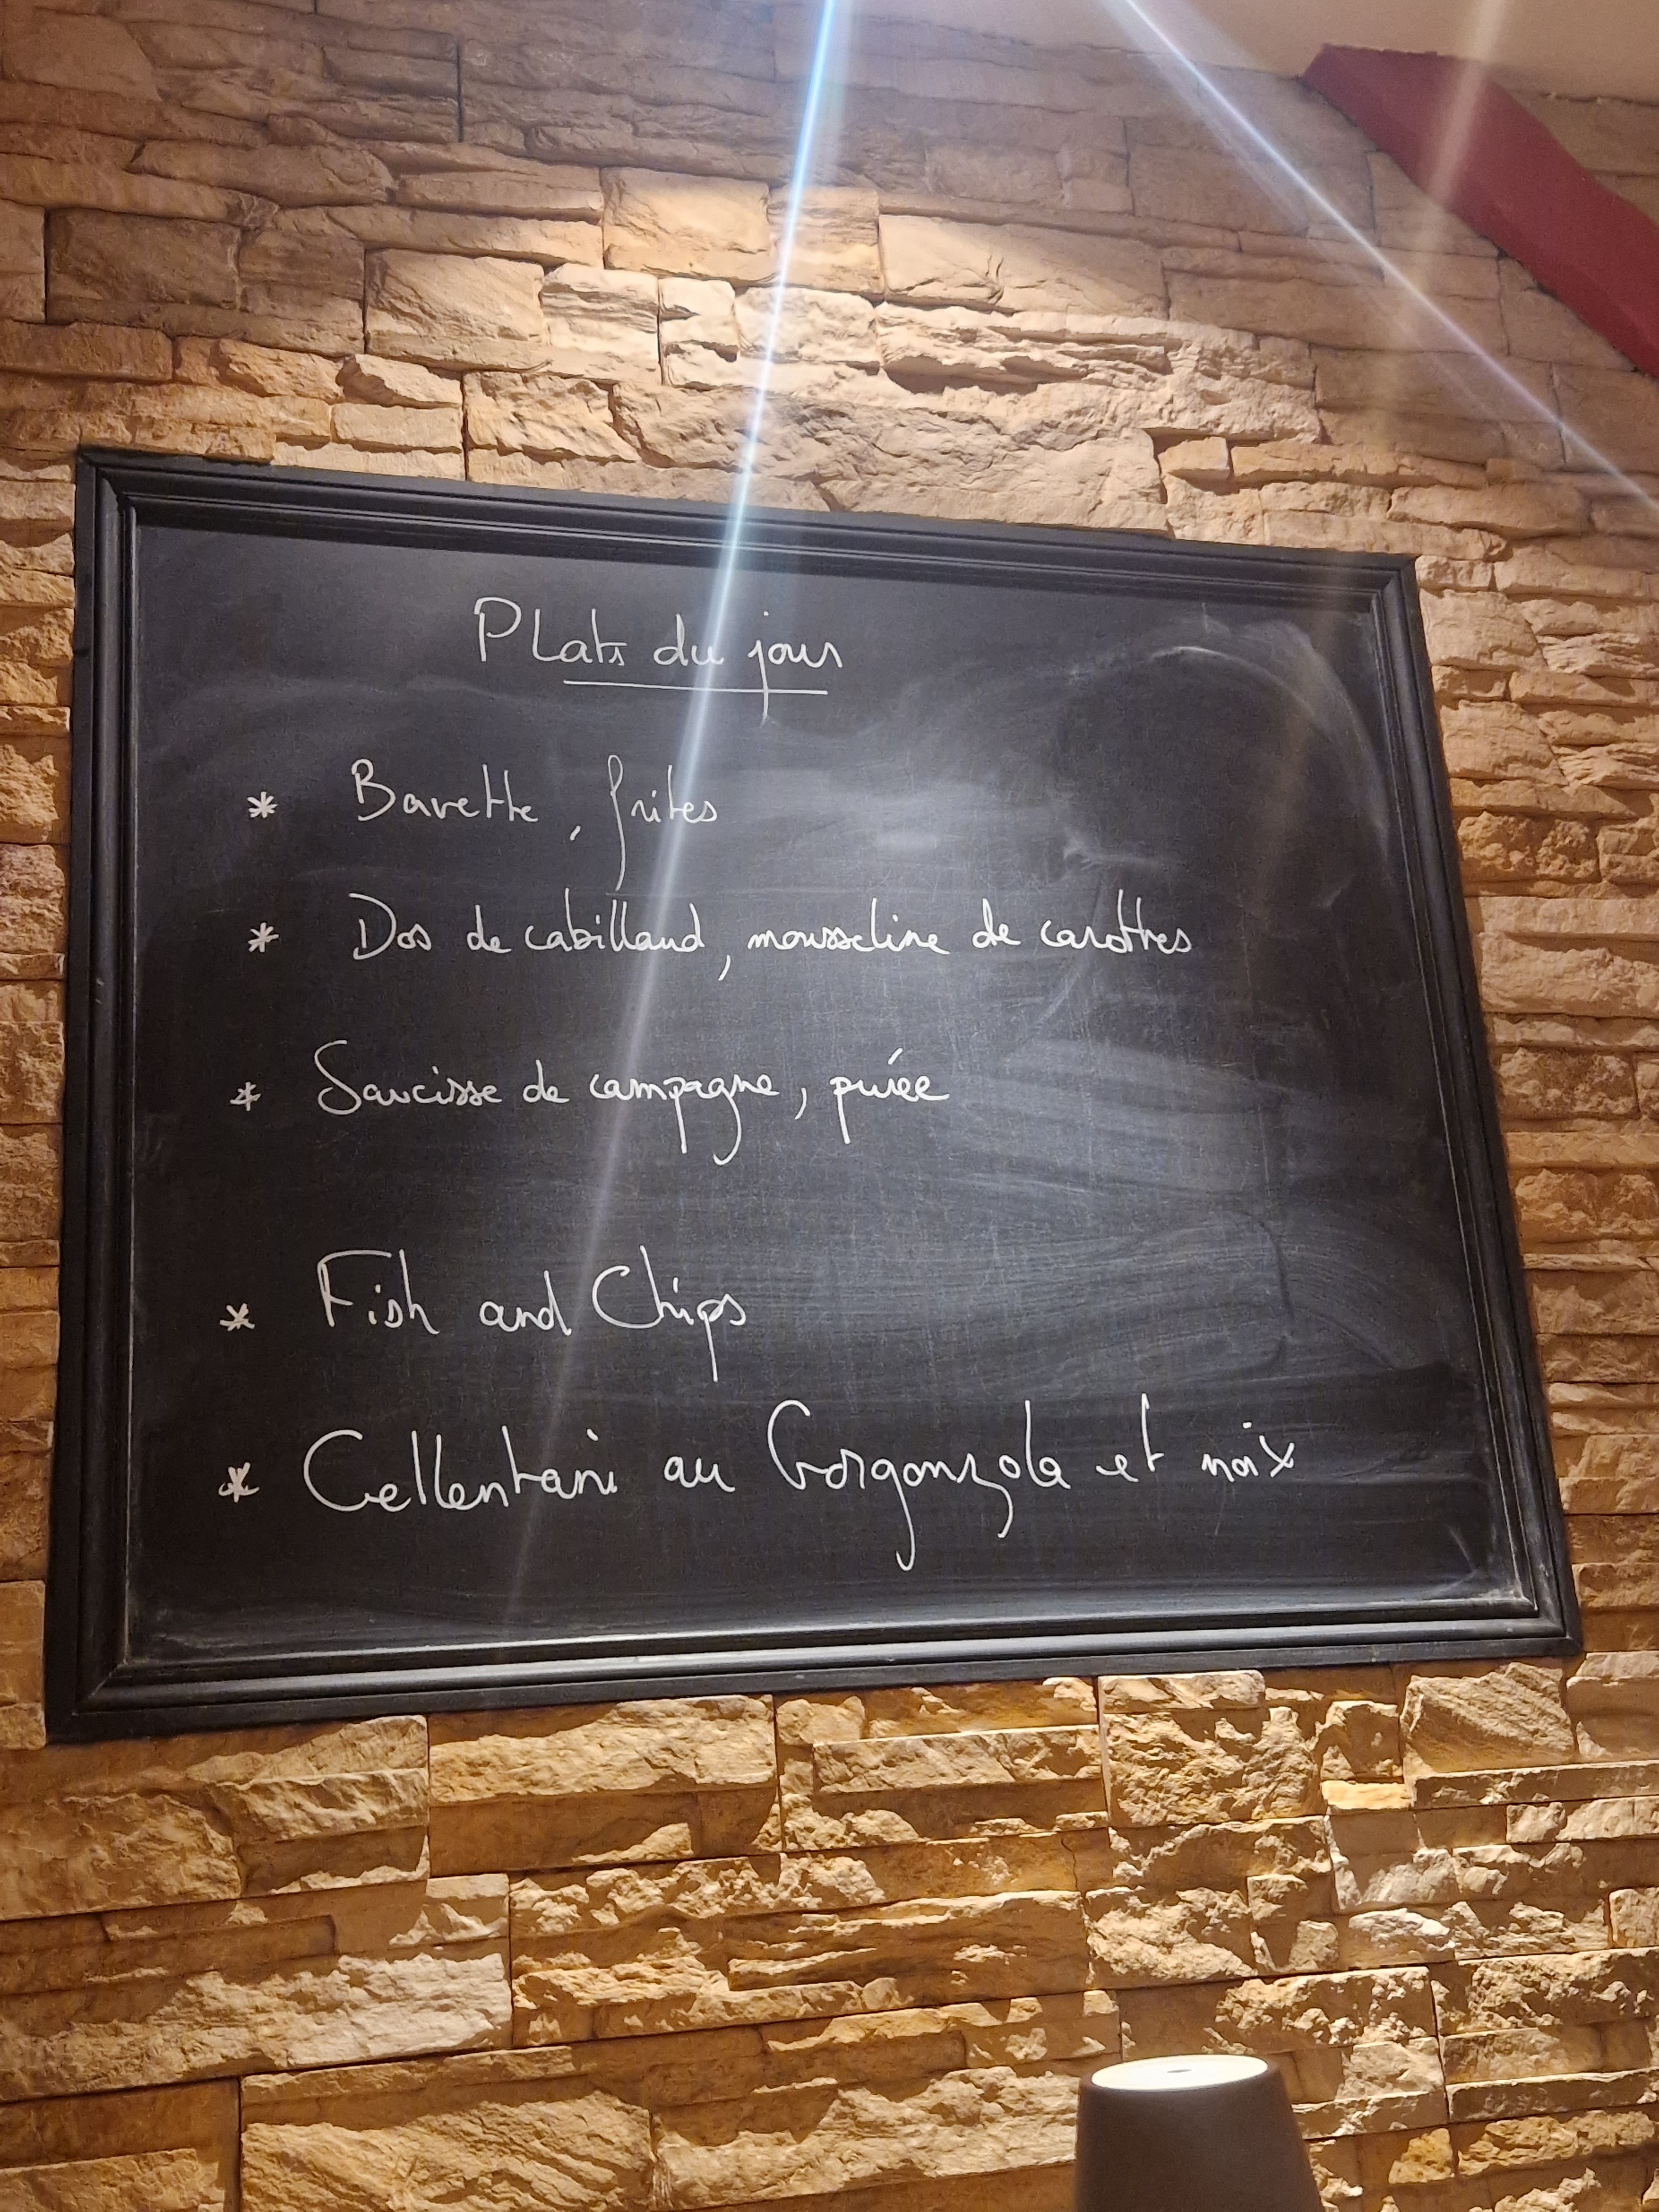 Plats du jour
* Bavette, frites
* Dos de cabillaud, mousseline de carottes
* Saucisse de campagne, purée
* Fish and Chips
* Cellentani au Gorgonzola et noix